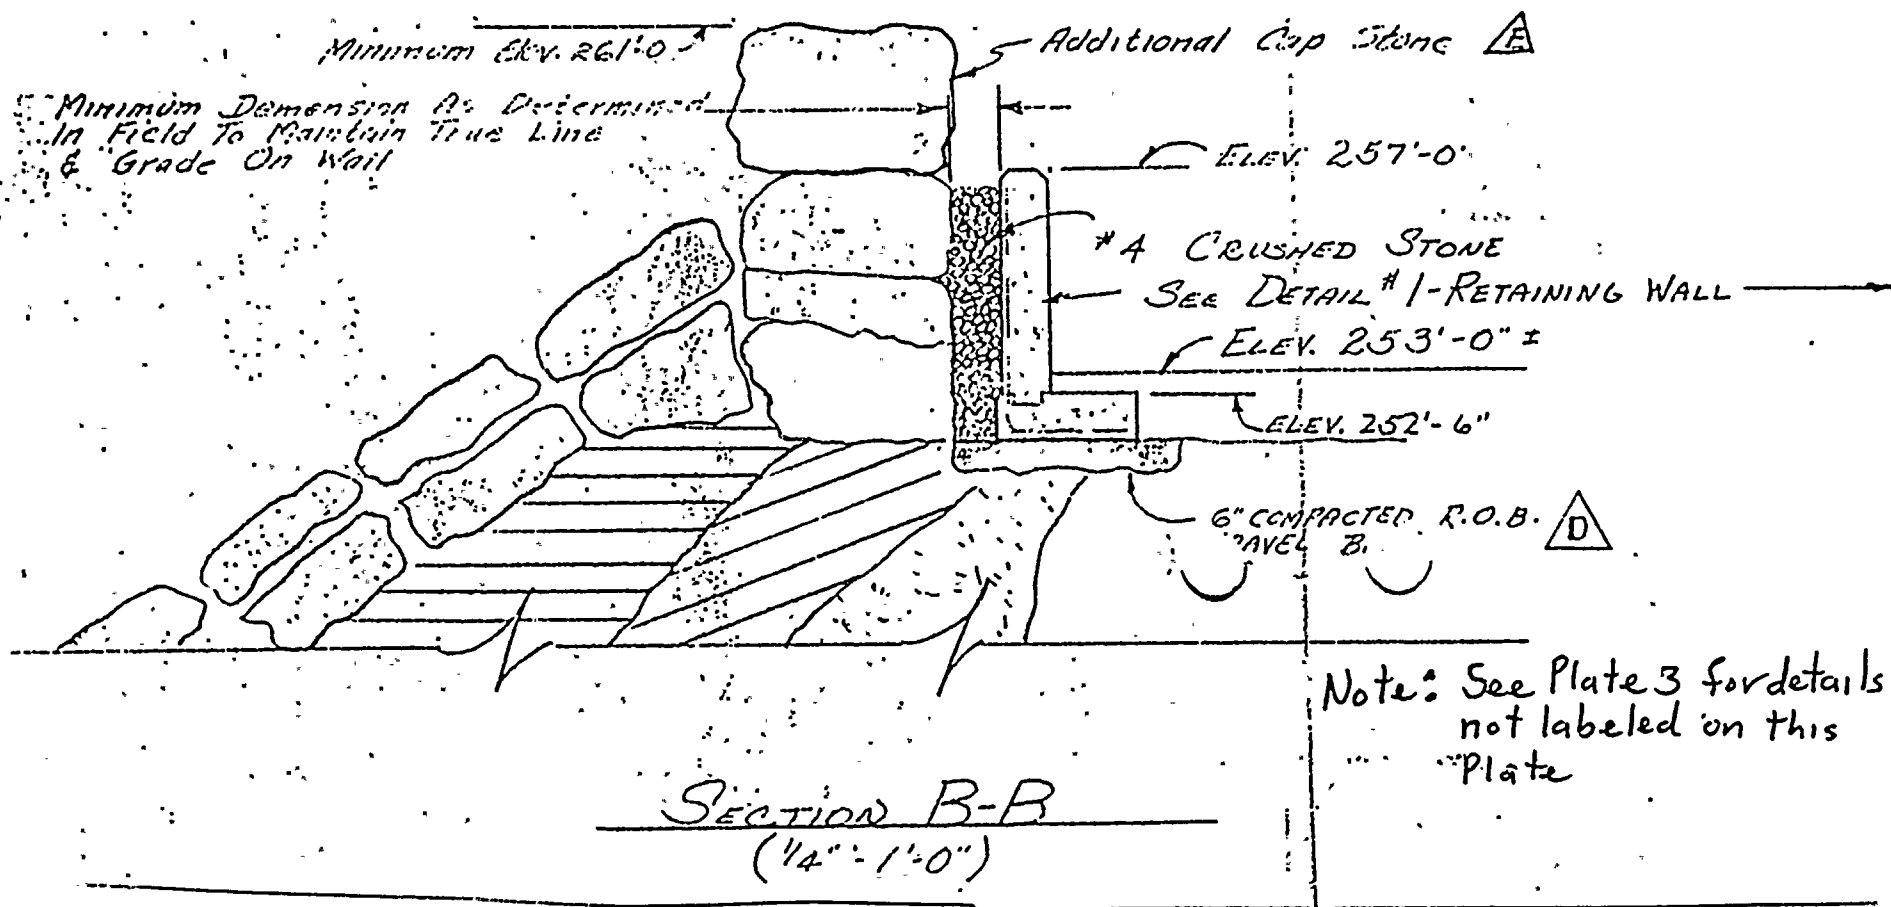 Minimum Elev. 261'-0
Additional Cap Stone E
Minimum Demension As Determined
In Field To Maintain True Line
& Grade On Wall
ELEV. 257'-0"
#4 CRUSHED STONE
SEE DETAIL #1-RETAINING WALL
ELEV. 253'-0" ±
ELEV. 252'-6"
6" COMPACTED R.O.B. D
AVEL B.
Note: See Plate 3 for details
not labeled on this
Plate
SECTION B-B
(1/4" - 1'-0")